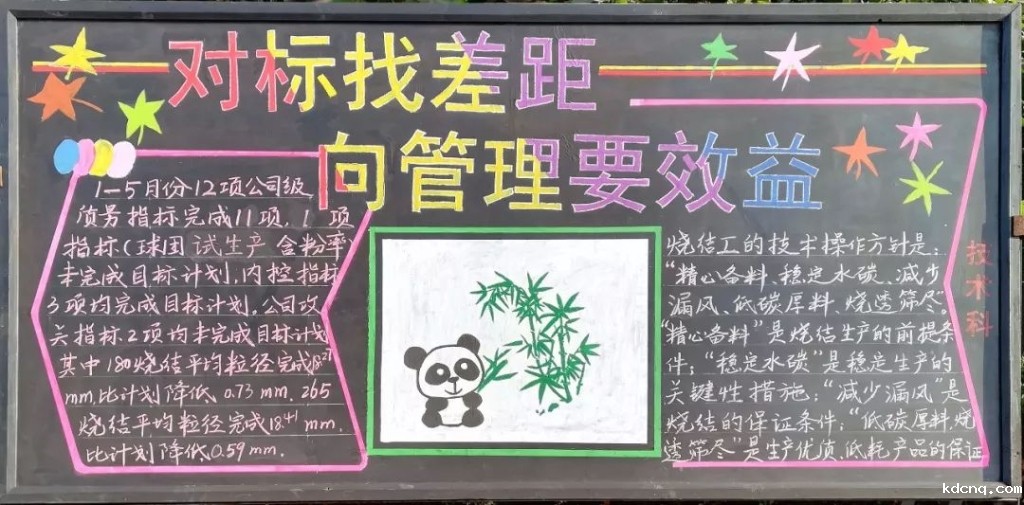 对标找差距
向管理要效益
1—5月份12项公司级
债务指标完成11项，1项
指标（球团试生产含粉率
未完成目标计划，内控指标
3项均完成目标计划，公司攻
关指标2项均未完成目标计划
其中180烧结平均粒径完成18.27
mm，比计划降低0.73mm，265
烧结平均粒径完成18.41mm，
比计划降低0.59mm。
烧结工的技术操作方针是：
“精心备料、稳定水碳、减少
漏风、低碳厚料、烧透筛尽”。
“精心备料”是烧结生产的前提条
件；“稳定水碳”是稳定生产的
关键性措施；“减少漏风”是
烧结的保证条件；“低碳厚料烧
透筛尽”是生产优质、低耗产品的保证
技术科
kdcnq.com